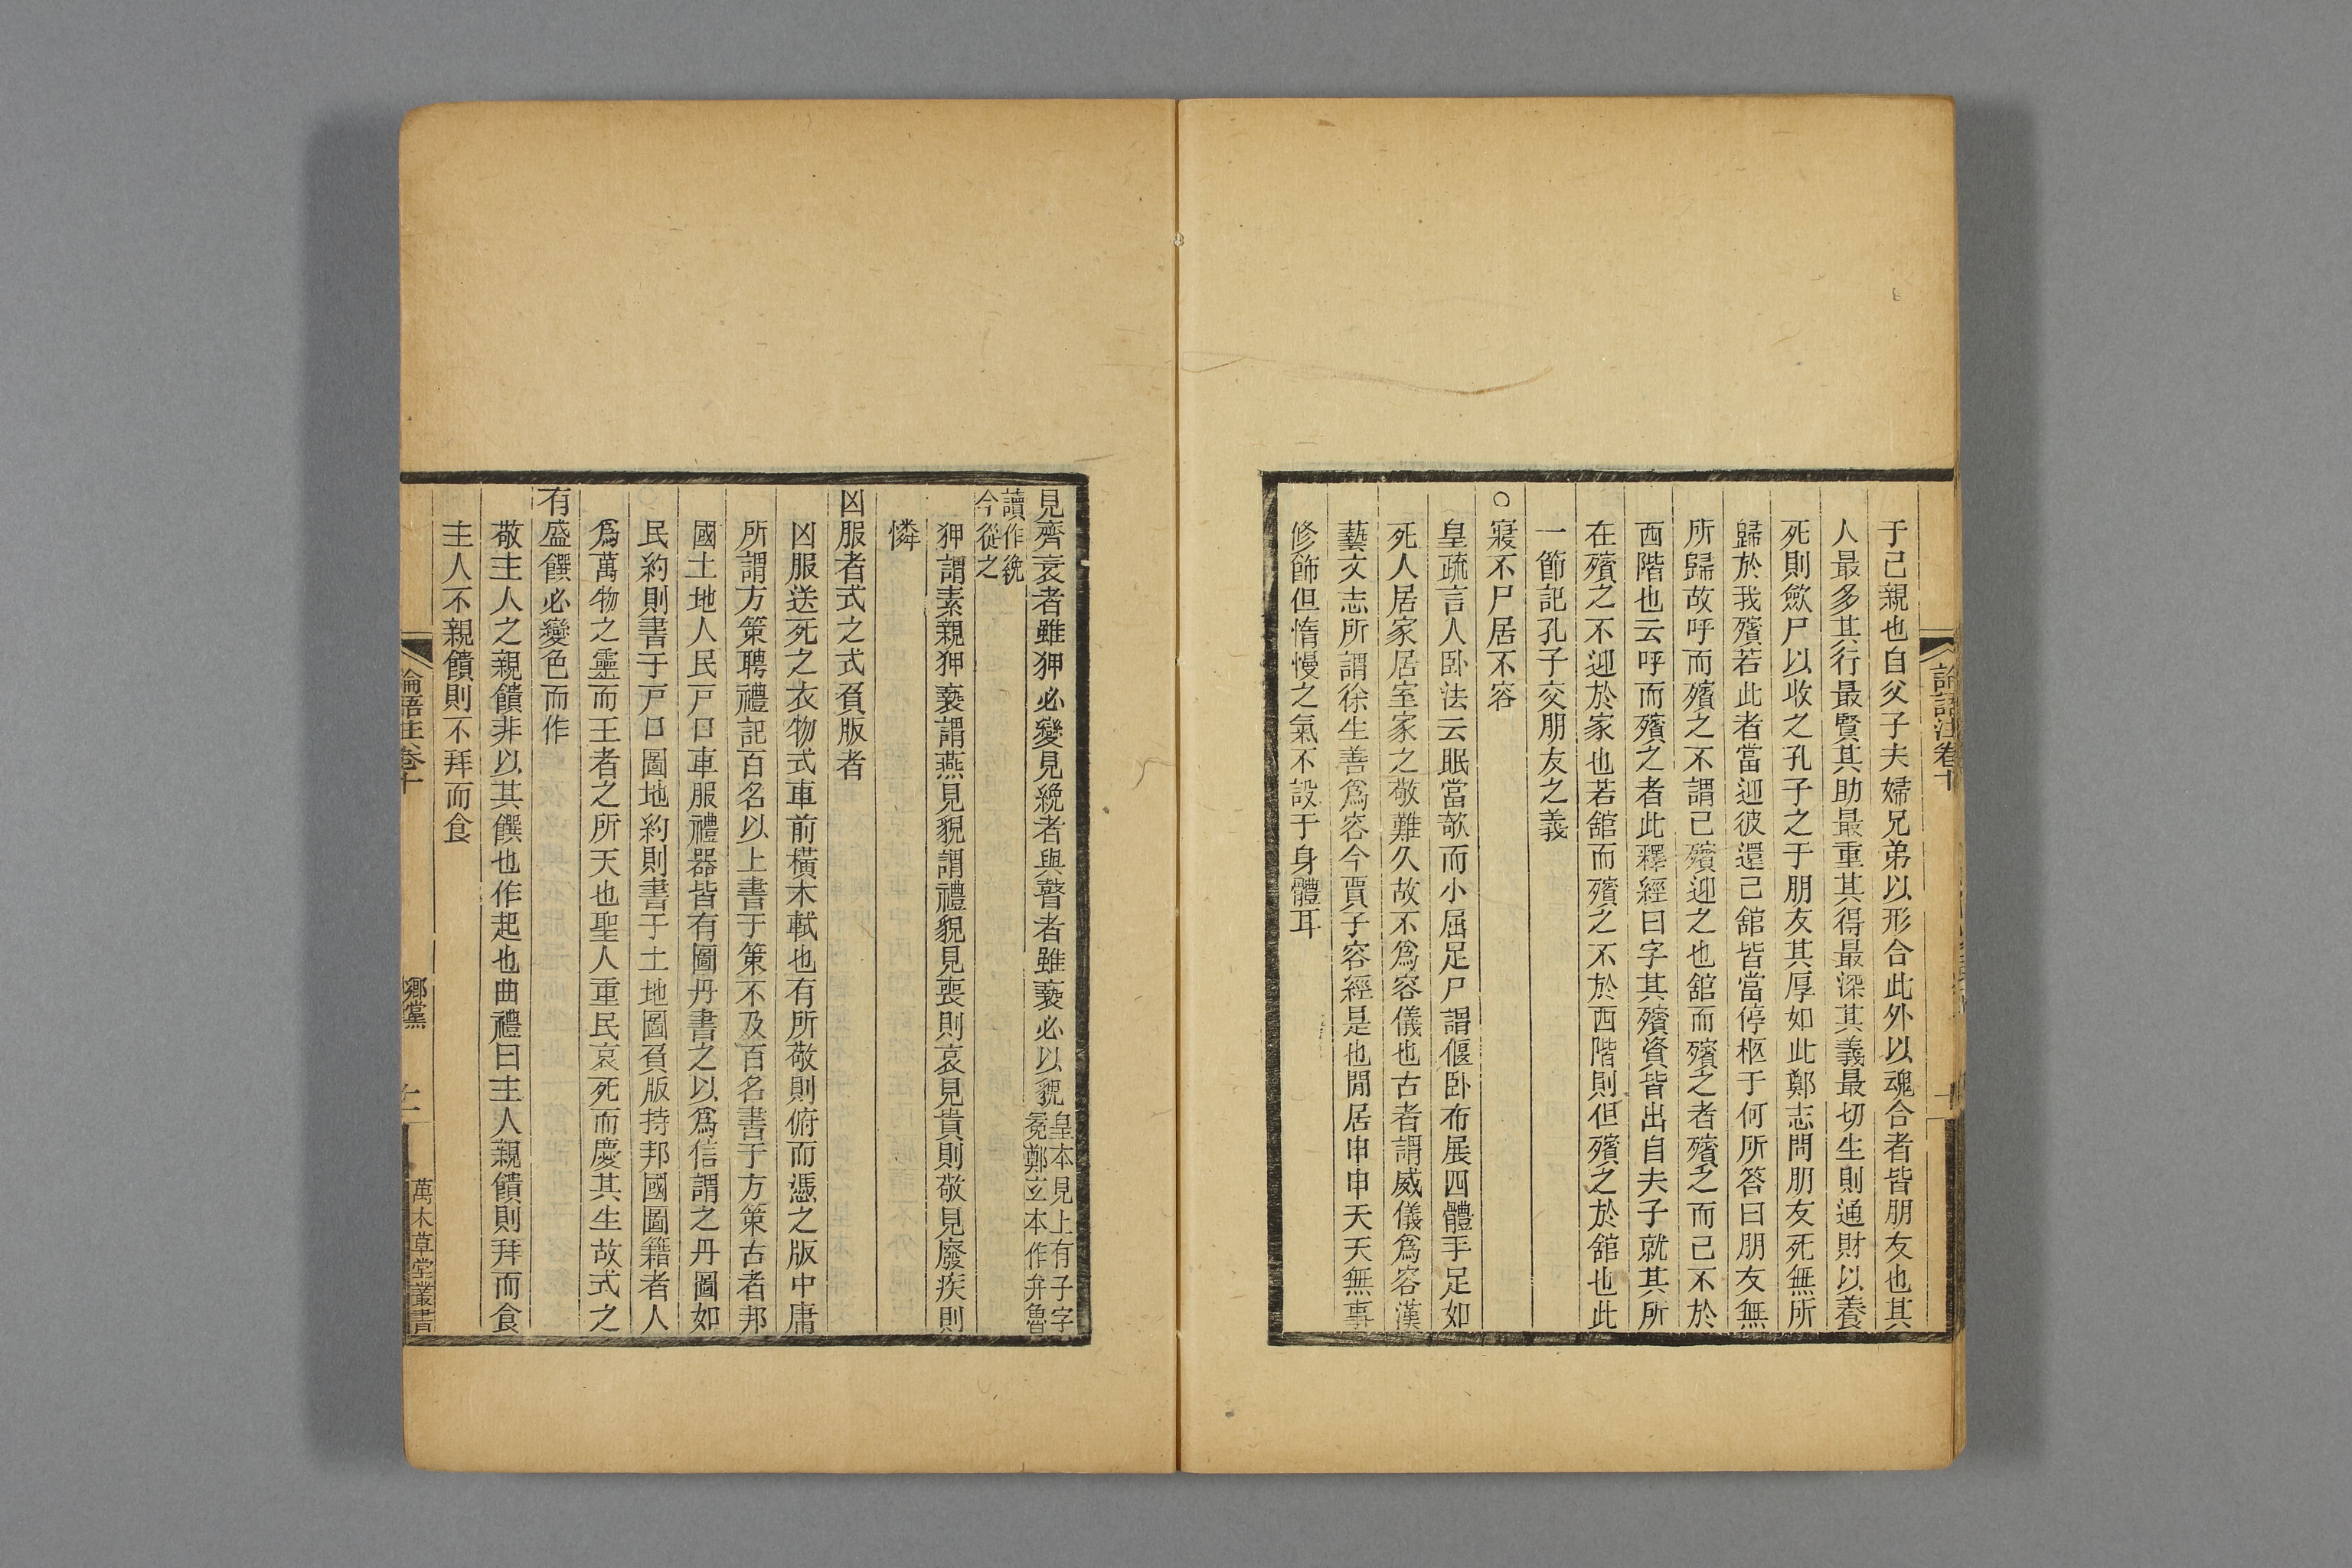 論語注卷十
于己親也自父子夫婦兄弟以形合此外以魂合者皆朋友也其
人最多其行最賢其助最重其得最深其義最切生則通財以養
死則歛尸以收之孔子之于朋友其厚如此鄭志問朋友死無所
歸於我殯若此者當迎彼還己舘皆當停柩于何所答曰朋友無
所歸故呼而殯之不謂己殯迎之也舘而殯之者殯之而已不於
西階也云呼而殯之者此釋經曰字其殯資皆出自夫子就其所
在殯之不迎於家也若舘而殯之不於西階則但殯之於舘也此
一節記孔子交朋友之義
○寢不尸居不容
皇疏言人卧法云眠當欹而小屈足尸謂偃卧布展四體手足如
死人居家居室家之敬難久故不爲容儀也古者謂威儀爲容漢
藝文志所謂徐生善爲容今賈子容經是也閒居申申夭夭無事
修飾但惰慢之氣不設于身體耳
見齊衰者雖狎必變見絻者與瞽者雖褻必以貌皇本見上有子字
冕鄭玄本作弁魯
讀作絻
今從之
狎謂素親狎褻謂燕見貌謂禮貌見喪則哀見貴則敬見廢疾則
憐
凶服者式之式負版者
凶服送死之衣物式車前橫木軾也有所敬則俯而憑之版中庸
所謂方策聘禮記百名以上書于策不及百名書于方策古者邦
國土地人民戸口車服禮器皆有圖丹書之以爲信謂之丹圖如
民約則書于戸口圖地約則書于土地圖負版持邦國圖籍者人
爲萬物之靈而王者之所天也聖人重民哀死而慶其生故式之
有盛饌必變色而作
敬主人之親饋非以其饌也作起也曲禮曰主人親饋則拜而食
主人不親饋則不拜而食
論語注卷十
鄉黨
萬木草堂叢書